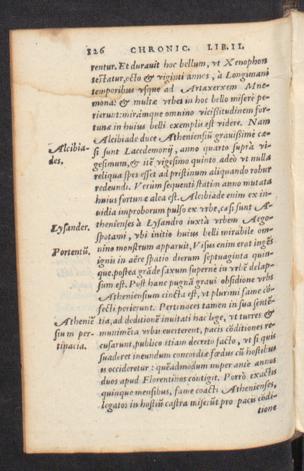 126 CHRONIC. LIB. II.
rentur. Et durauit hoc bellum, vt Xenophon
testatur, octo & viginti annos, à Longimani
temporibus vsque ad Artaxerxem Mne-
mona: & multæ vrbes in hoc bello miserè pe-
rierunt: miráque omnino vicissitudinem for-
tunæ in huius belli exemplis est videre. Nam
Alcibiade duce Atheniensiũ grauissimè cæ-
Alcibia-
des.
si sunt Lacedæmonij, anno quarto suprà vi-
gesimum, & itẽ vigesimo quinto adeò vt nulla
reliqua spes esset ad pristinum aliquando robur
redeundi. Verùm sequenti statim anno mutata
huius fortunæ alea est. Alcibiade enim ex in-
uidia improborum pulso ex vrbe, cæsi sunt A-
Lysander.
thenienses à Lysandro iuxtà vrbem Aego-
spotami, vbi initio huius belli mirabile om-
Portentũ.
nino monstrum apparuit, Visus enim erat ingẽs
ignis in aëre spatio dierum septuaginta quin-
que, postea grãde saxum supernè in vrbẽ delap-
sum est. Post hanc pugnã graui obsidione vrbs
Atheniensium cincta est, vt plurimi fame cõ-
fecti perierint. Pertinaces tamen in sua sentẽ-
Atheniẽ
sium per-
tinacia.
tia, ad deditionẽ inuitati hac lege, vt turres &
munimẽta vrbis euerterent, pacis cõditiones re-
cusarunt, publico etiam decreto facto, vt si quis
suaderet ineundam concordiæ fœdus cũ hostibus
is occideretur: quẽadmodum nuper antè annos
duos apud Florentinos contigit. Porrò exactis
quinque mensibus, fame coacti Athenienses,
legatos in hostiũ castra miserũt pro pacis cõdi-
tione